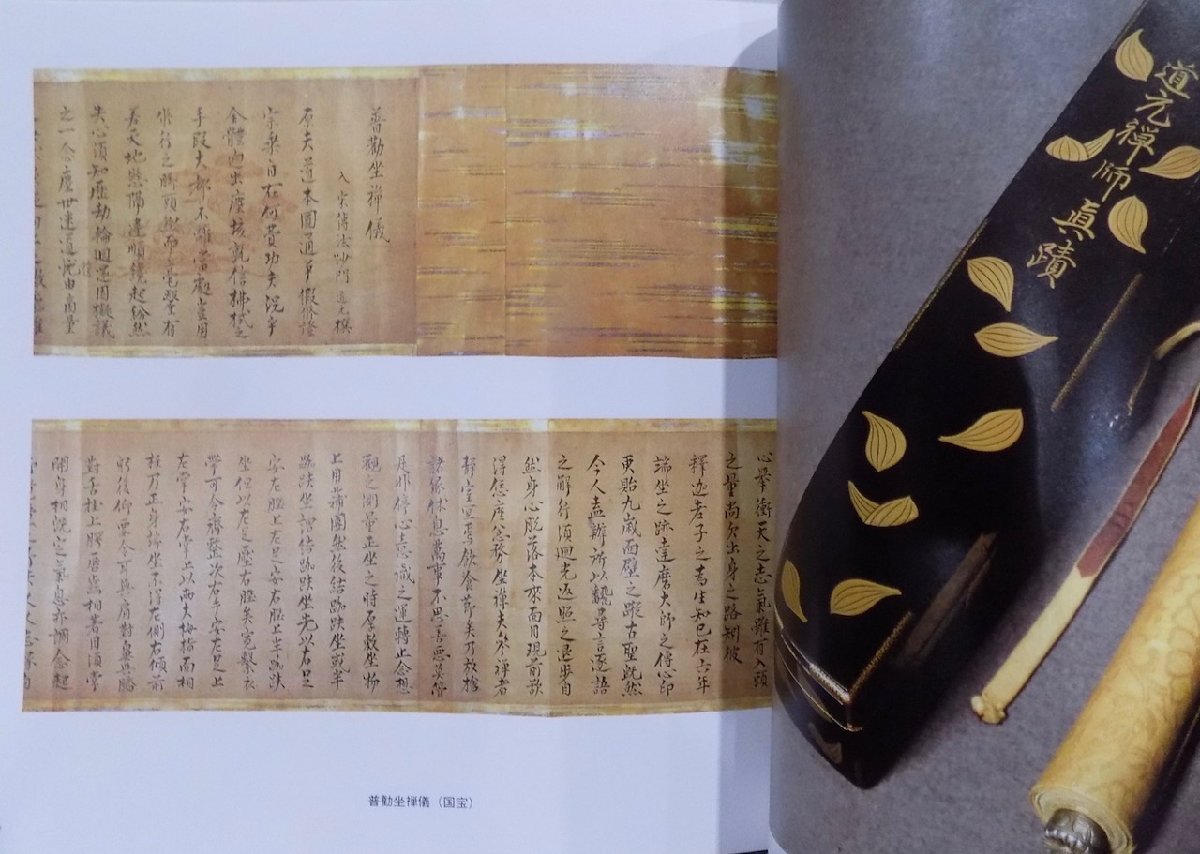 道元禅師真蹟
普勧坐禅儀
入宋傳法沙門 道元 撰
原夫道本圓通爭假修證
宗乘自在何費功夫況乎
全體逈出塵埃孰信拂拭之
手段大都不離當處豈用
修行之脚頭然而毫釐有
差天地懸隔違順纔起紛然
失心須知歴劫輪回還因擬議
之一念塵世迷道復由商量
心擧衝天之志氣雖有入頭
之量尚欠出身之路矧彼
釋迦老子之爲生知已在六年
端坐之跡達磨大師之傳心印
更貽九歳面壁之蹤古聖既然
今人盍辦所以飜尋言逐語
之解行須廻光返照之退歩自
然身心脱落本來面目現前欲
得恁麼急務坐禅夫參禅者
靜室宜焉飮食節矣乃放捨
諸縁休息萬事不思善惡莫管
是非停心意識之運轉止念想
觀之測量正坐之時厚敷坐物
上用蒲團然後結跏趺坐或半
跏趺坐謂結跏趺坐先以右足
安左䏶上左足安右䏶上半跏趺
坐但以左足壓右䏶矣寛繋衣
帶可令齊整次右手安左足上
左掌安右掌上以兩大拇指面相
柱乃正身端坐不得左側右傾前
躬後仰要令耳與肩對鼻與臍
對舌柱上腭唇齒相著目須常
開身相既定氣息亦調念起
普勧坐禅儀（国宝）